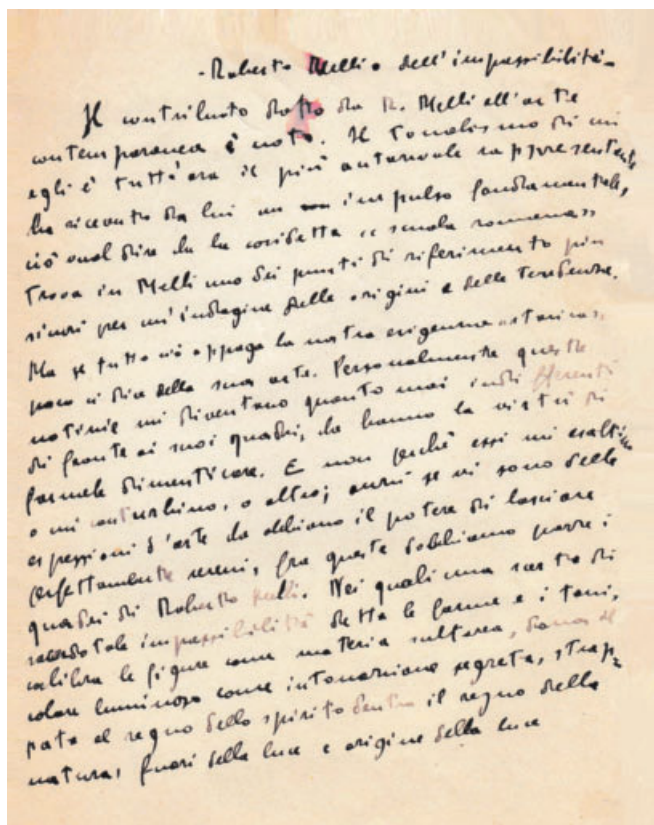 - Roberto Melli o dell'impassibilità -
Il contributo dato da R. Melli all'arte
contemporanea è noto. Il tonalismo di cui
egli è tutt'ora il più autorevole rappresentante
ha ricevuto da lui un impulso fondamentale,
ciò vuol dire che la cosidetta "scuola romana"
trova in Melli uno dei punti di riferimento più
sicuri per un'indagine delle origini e delle tendenze.
Ma se tutto ciò appaga la nostra esigenza storica,
poco ci dice della sua arte. Personalmente queste
notizie mi diventano quanto mai indifferenti
di fronte ai suoi quadri, che hanno la virtù di
farmele dimenticare. E non perché essi mi esaltino
o mi conturbino, o altro; anzi se vi sono delle
espressioni d'arte che abbiano il potere di lasciare
perfettamente sereni, fra queste dobbiamo porre i
quadri di Roberto Melli. Nei quali una sorta di
sacerdotale impassibilità detta le forme e i toni,
calibra le figure come materia
colore luminoso come intonazione segreta, strap=
pata al regno dello spirito dentro il regno della
natura, fuori della luce e origine della luce